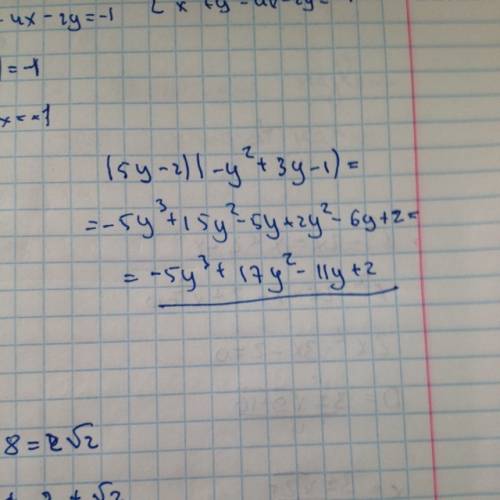 - 4x - 2y = -1
) = -1
x = -1
(5y-2)(-y²+3y-1)=
=-5y³+15y²-5y+2y²-6y+2=
=-5y³+17y²-11y+2
8=2√2